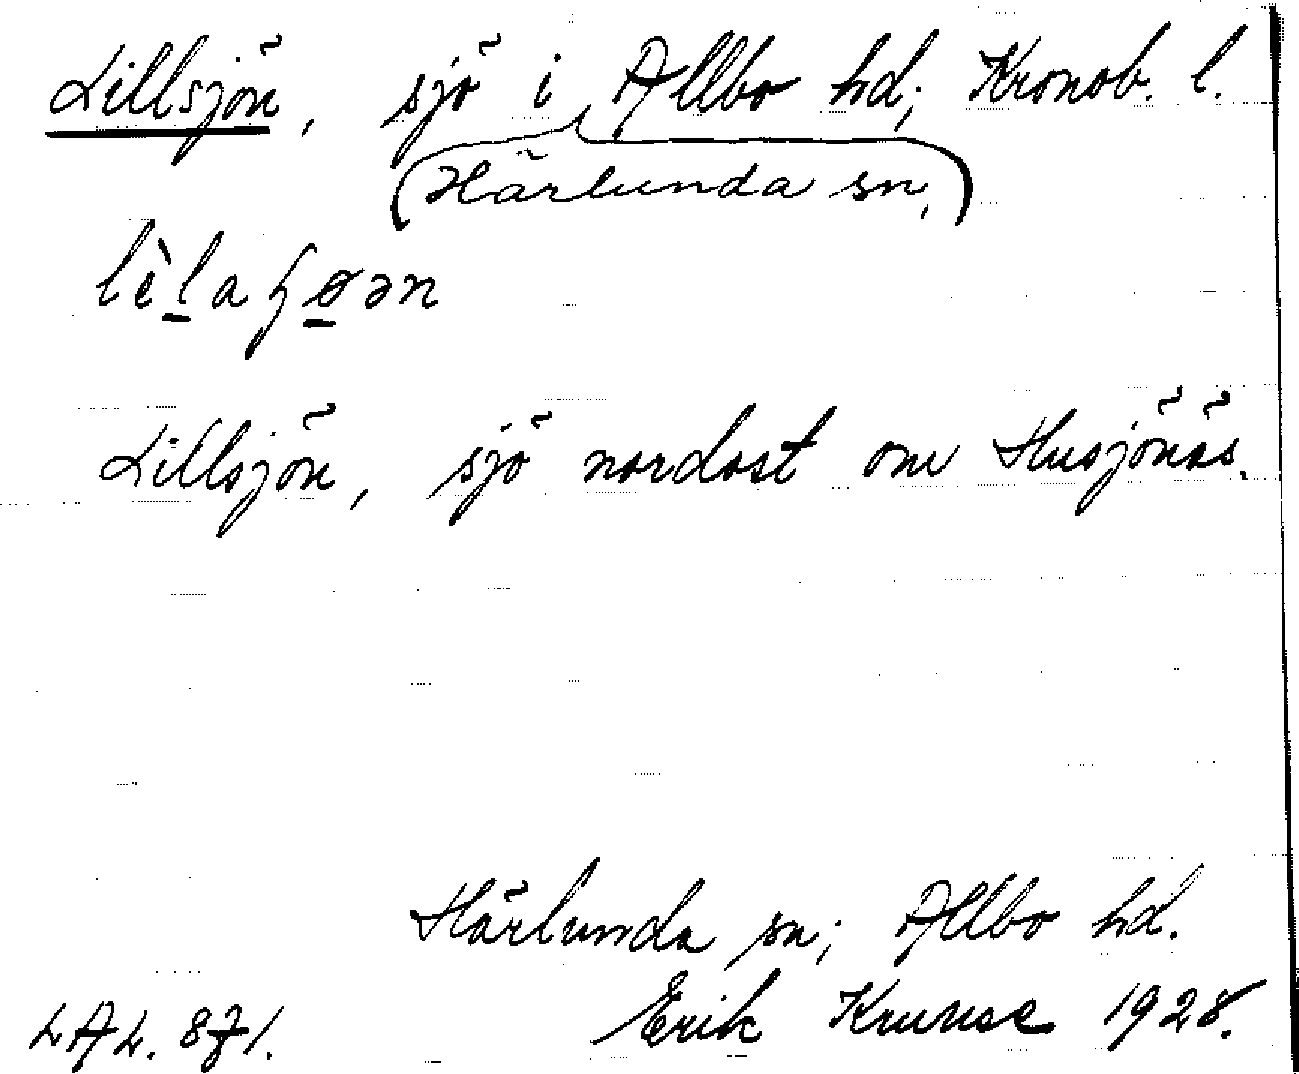 Lillsjön, sjö i Allbo hd; Kronob. l.
(Härlunda sn,)
Lillsjön, sjö nordost om Husjönäs.
Härlunda sn; Allbo hd.
LAL. 871. Erik Kruuse 1928.